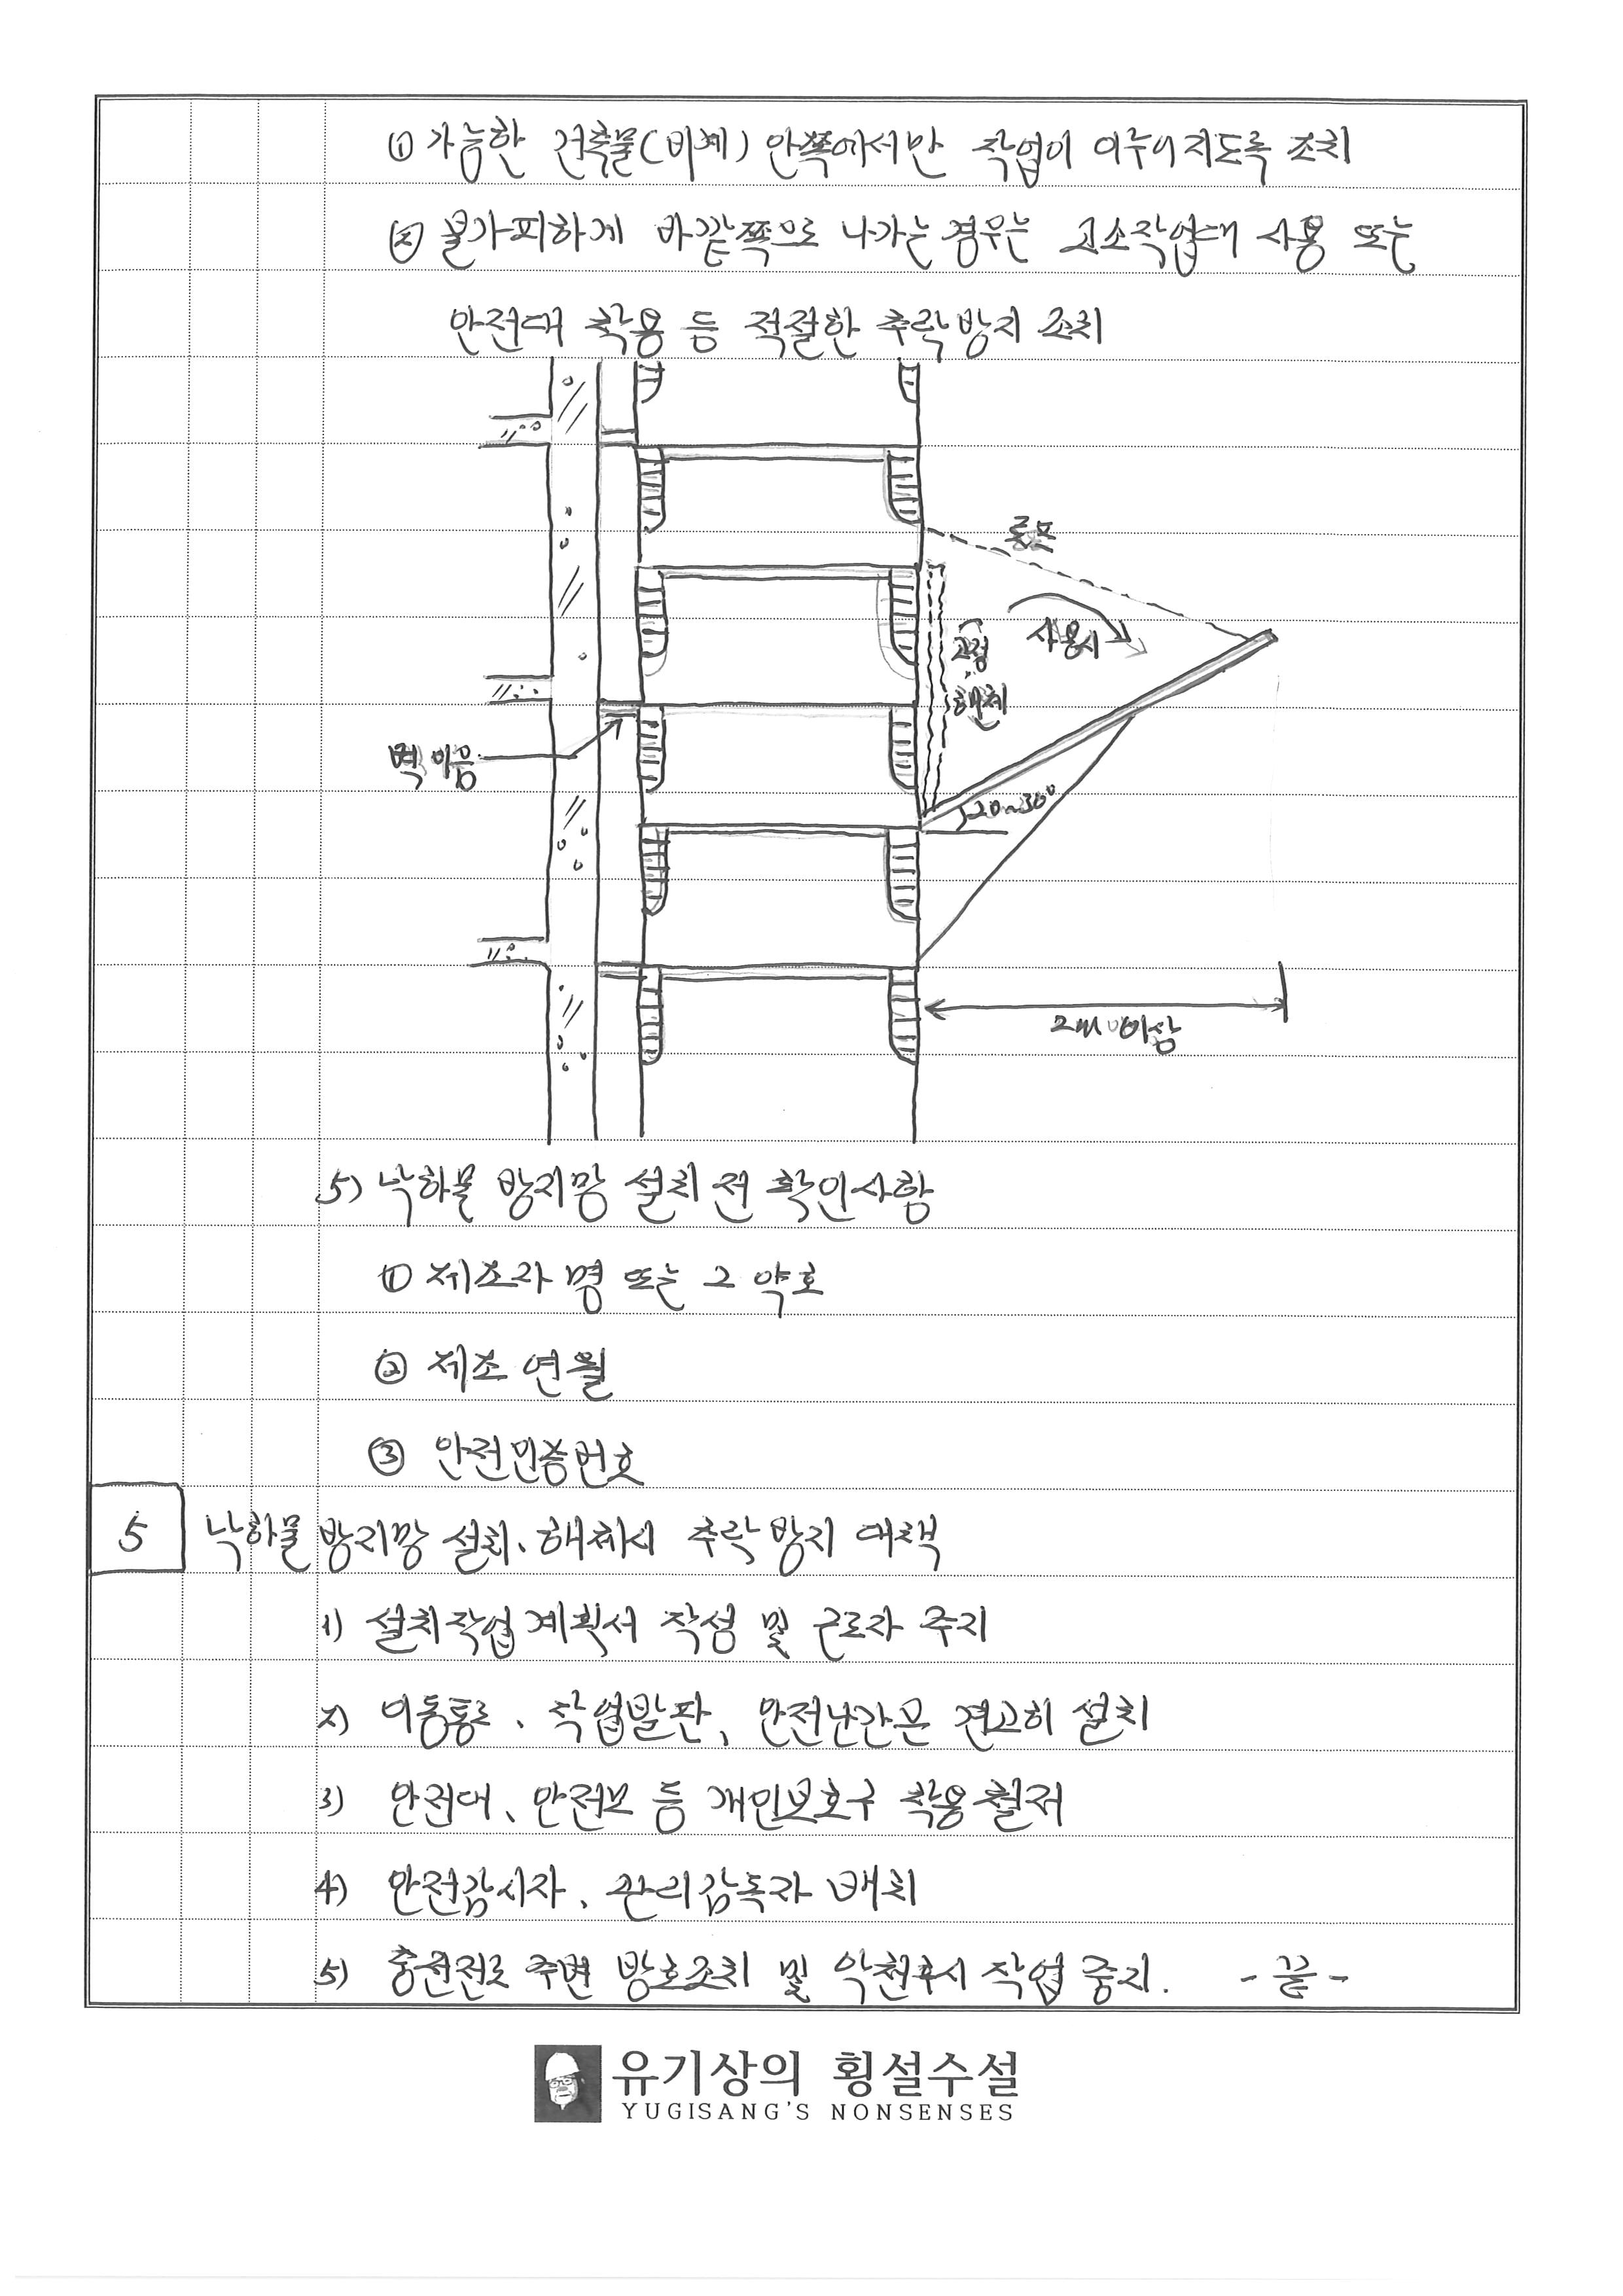 ① 가능한 건축물(비계) 안쪽에서만 작업이 이루어지도록 조치
② 불가피하게 바깥쪽으로 나가는 경우는 고소작업대 사용 또는
안전대 착용 등 적절한 추락방지 조치
로프
사용시
고정
해체
벽이음
20~30°
2m 이상
5) 낙하물 방지망 설치 전 확인사항
① 제조자 명 또는 그 약호
② 제조 연월
③ 안전인증번호
5 낙하물 방지망 설치、해체시 추락 방지 대책
1) 설치작업계획서 작성 및 근로자 주지
2) 이동통로、작업발판、안전난간은 견고히 설치
3) 안전대、안전모 등 개인보호구 착용 철저
4) 안전감시자、관리감독자 배치
5) 충전전로 주변 방호조치 및 악천후시 작업 중지. - 끝 -
유기상의 횡설수설
YUGISANG'S NONSENSES